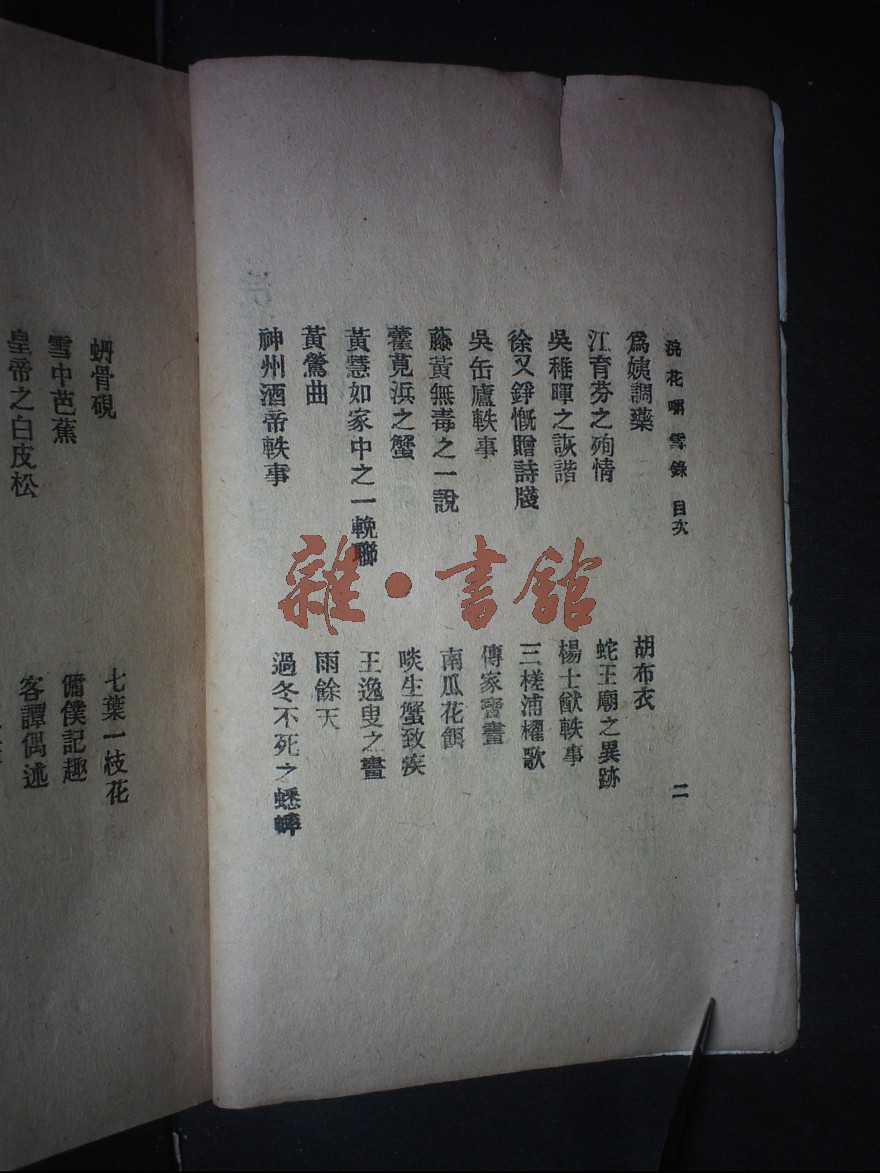 浣花嚼雪錄 目次
二
爲姨調藥
胡布衣
江育芬之殉情
蛇王廟之異跡
吳稚暉之詼諧
楊士猷軼事
徐又錚慨贈詩牋
三槎浦櫂歌
吳缶廬軼事
傳家寶畫
藤黃無毒之一說
南瓜花餌
藿莧浜之蟹
啖生蟹致疾
黃慧如家中之一輓聯
王逸叟之畫
黃鶯曲
雨餘天
神州酒帝軼事
過冬不死之蟋蟀
蚺骨硯
七葉一枝花
雪中芭蕉
傭僕記趣
皇帝之白皮松
客譚偶述
雜·書館